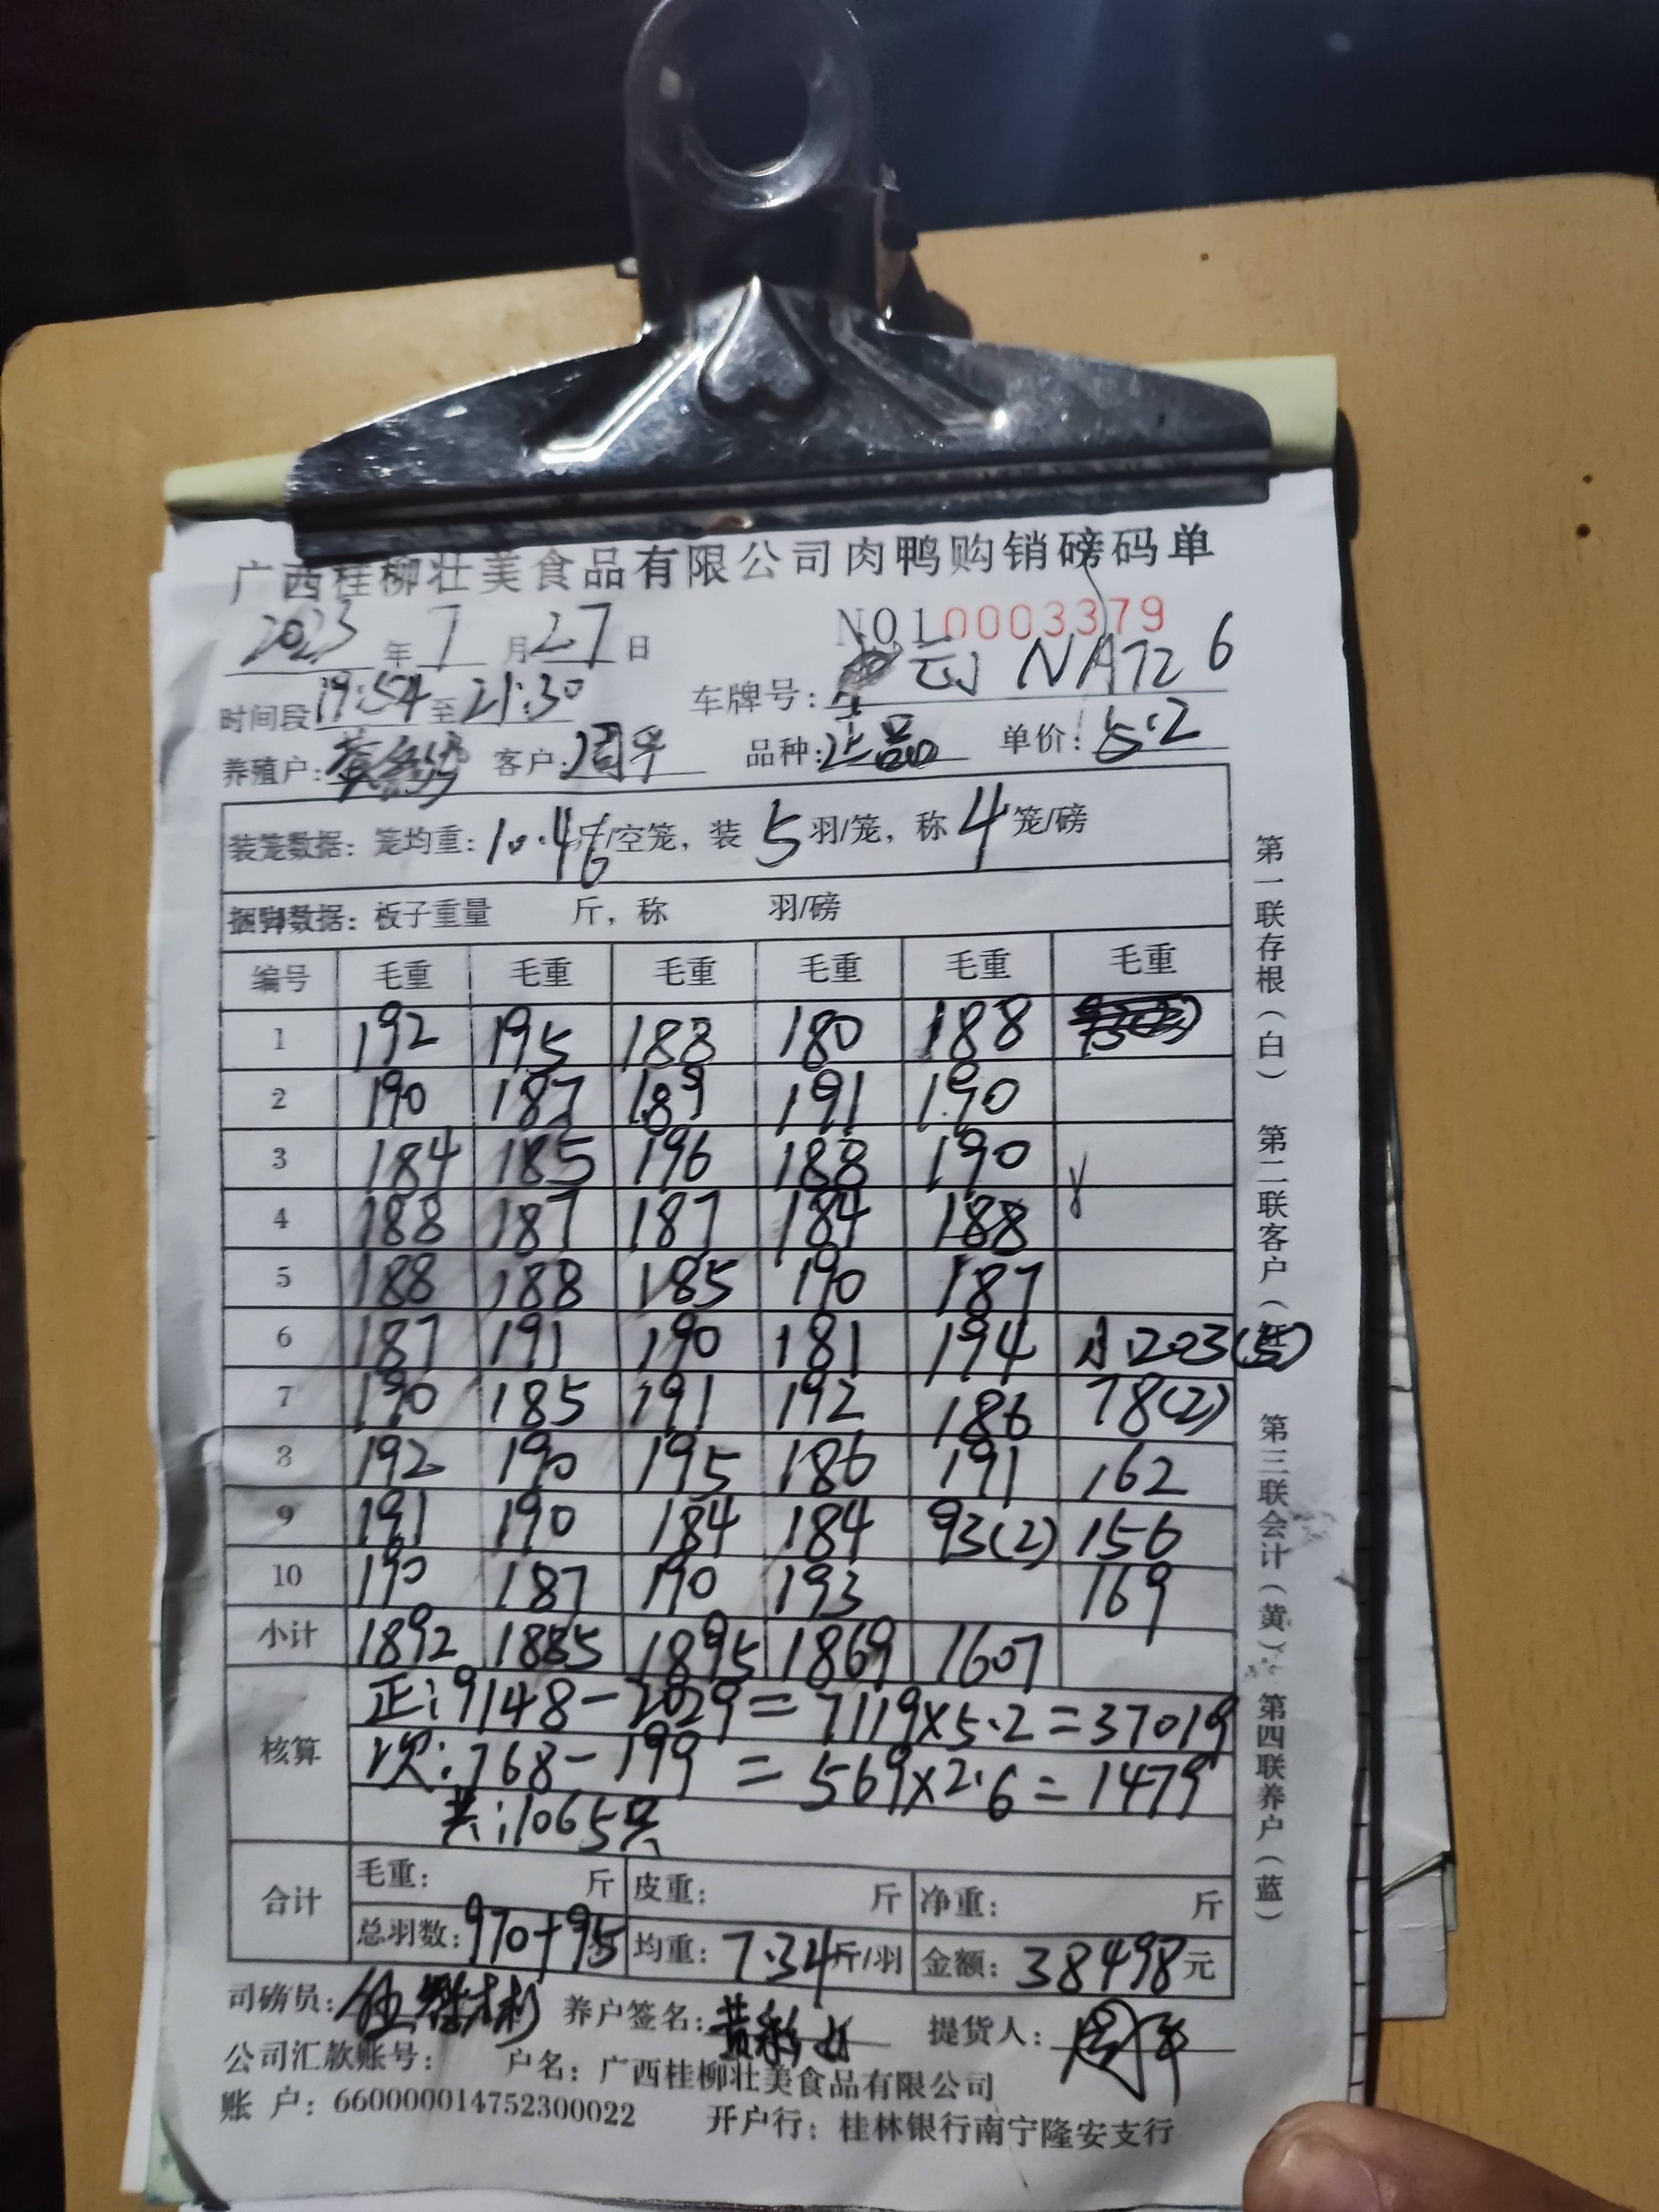 广西桂柳壮美食品有限公司肉鸭购销磅码单
2023年7月27日 NO10003379
时间段19:54至21:30 车牌号: NA726
养殖户: 客户:周平 品种:正品 单价:5.2
装笼数据:笼均重:10.46斤/空笼,装5羽/笼,称4笼/磅
捆脚数据:板子重量 斤,称 羽/磅
编号 毛重 毛重 毛重 毛重 毛重 毛重
1 192 195 188 180 188
2 190 187 189 191 190
3 184 185 196 188 190
4 188 187 187 184 188
5 188 188 185 190 187
6 187 191 190 181 194 203(5)
7 190 185 191 192 186 78(2)
8 192 190 195 186 191 162
9 191 190 184 184 93(2) 156
10 190 187 190 193 169
小计 1892 1885 1895 1869 1607
核算 正:9148-2029=7119×5.2=37019
次:768-199=569×2.6=1479
共:1065只
合计 毛重: 斤 皮重: 斤 净重: 斤
总羽数:970+95 均重:7.34斤/羽 金额:38498元
司磅员: 养户签名: 提货人:周平
公司汇款账号: 户名:广西桂柳壮美食品有限公司
账 户:660000014752300022 开户行:桂林银行南宁隆安支行
第一联存根(白) 第二联客户(红) 第三联会计(黄) 第四联养户(蓝)